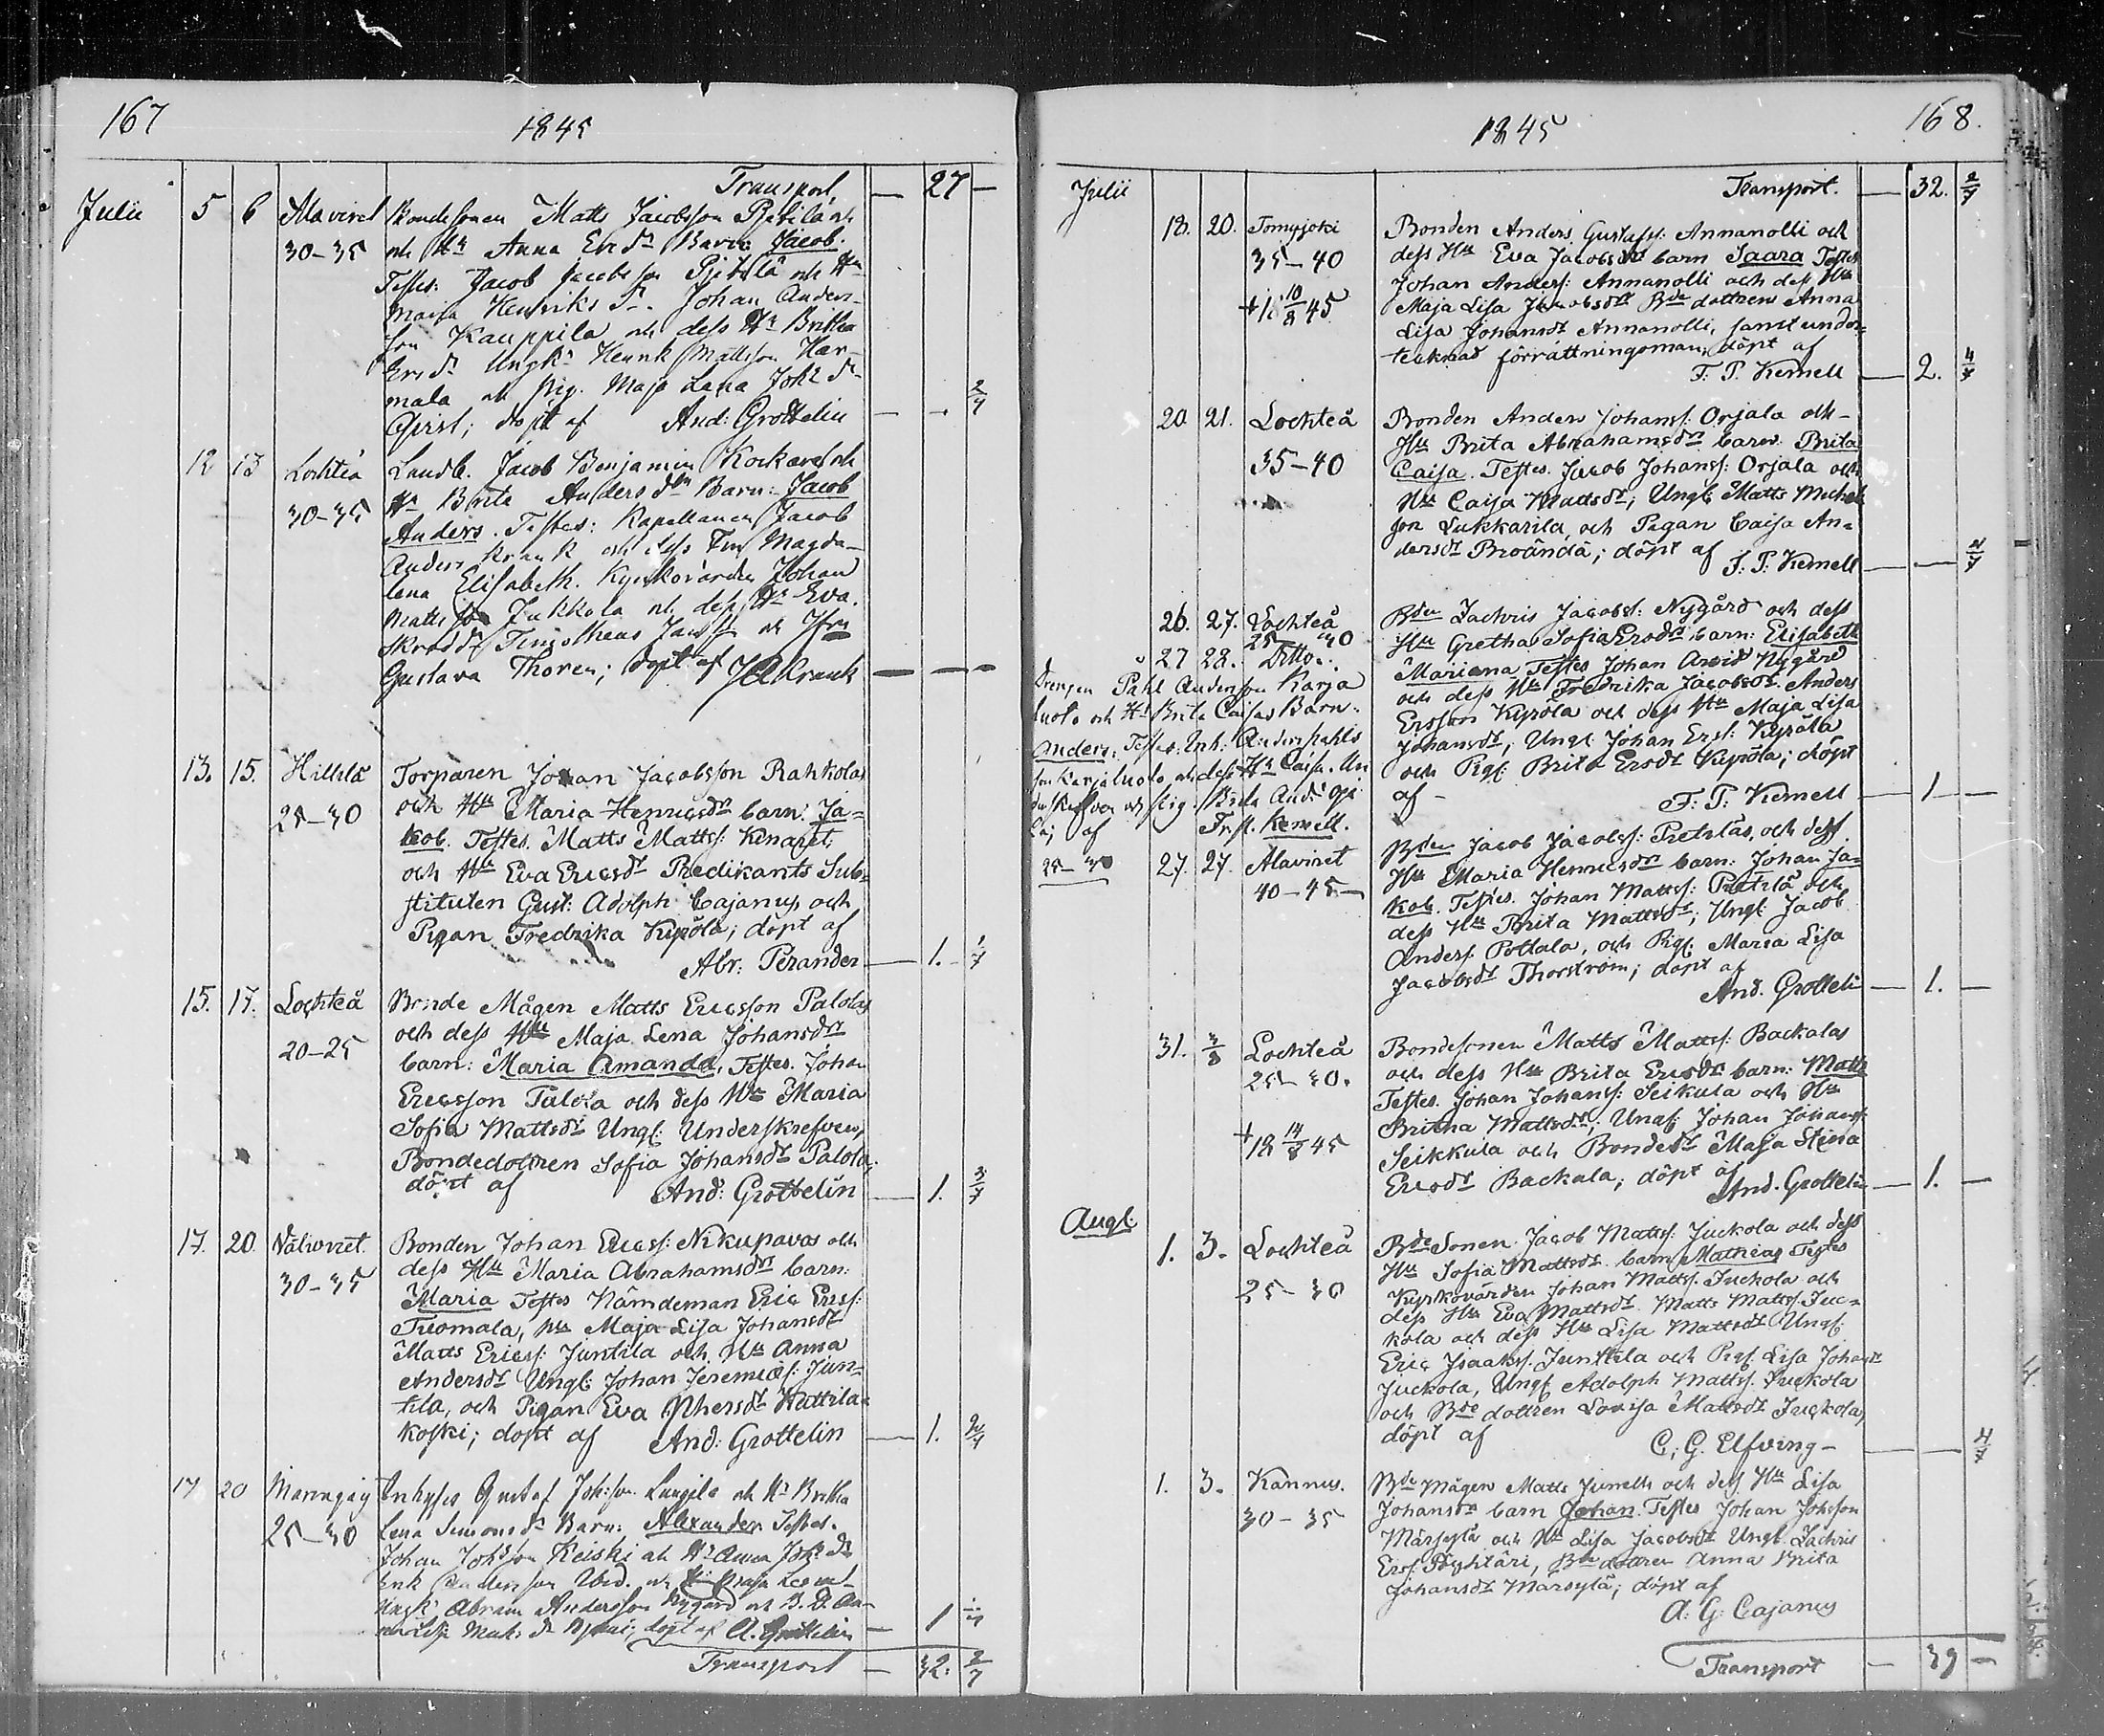 167
1845
Transport — 27 —
Julii 5 6 Alaviret Bondesonen Matts Jacobsson Pjetilä och
30-35 och Hu Anna Ers dr Barn: Jacob.
Testes: Jacob Jacobsson Pjetilä och Hu
Maria Henriks dr. Johan Anders-
son Kauppila och dess Hu Britha
Ers dr Ungk: Henrik Mattsson Har-
mala och pig. Maja Lena Joh: dr 2/7
döpt af And: Grottelin — -
12 13 Lochteå Landb. Jacob Benjamin och
30-35 Hu Brita Anders dr Barn: Jacob
Anders. Testes: Kapellanen Jacob
Anders Kranck och dess Fru Magda-
lena Elisabeth. Kyrkovärden Johan
Mattsson Jukkola och dess Hu Eva.
Skrädd: Timotheus och Jfru
Gustava Thoren; döpt af JAKranck — — —
13. 15. Hillilä Torparen Johan Jacobsson Rahkolas
25-30 och Hu Maria Henricsdrs barn: Ja=
kob. Testes. Matts Mattss: Kinaret,
och Hu Eva Ericsdr Predikants Sub=
stituten Gust: Adolph Cajanus och
Pigan Fredrika Kipölä; döpt af
Abr: Perander — 1. 1/7
15. 17. Lochteå Bonde Mågen Matts Ericsson Palolas
och dess Hu Maja Lena Johansdrs
20-25 barn: Maria Amanda, Testes. Johan
Ericsson Palola och dess Hu Maria
Sofia Mattsdr Ungl: Underskrefven,
Bondedottren Sofia Johansdr Palola,
döpt af And: Grottelin — 1. 3/7
17. 20. Välivviret. Bonden Johan Ericss: Nikupavas och
30-35 dess Hu Maria Abrahamsdrs barn:
Maria Testes Nämdeman Eric Erss:
Tuomala, Hu Maja Lisa Johansdr
Matts Ericss: Juntila och Hu Anna
Andersdr Ungl: Johan Jeremiæs: Jun-
tila, och Pigan Eva Phersdr Wuttila=
koski; döpt af And: Grottelin — 1. 2/7
17 20 Inhyses Gustaf Joh:son och Hu Britha
25-30 Lena Simons dr Barn: Alexander. Testes.
Johan Johsson Keiski och Hu Anna Joh: dr
Erik Andersson och Hu Maja Lena
Ungk: Abram Andersson Nygård och B. D. An-
döpt af A. Grottelin — 1
Transport — 32. 2/7
168.
1845
Julii Transport. — 32. 2/7
18. 20. Tomujoki Bonden Anders Gustafss: Annanolli och
35-40 dess Hu Eva Jacobsdrs barn Saara Testes
Johan Anderss: Annanolli och dess Hu
+ 18 10/8 45 Maja Lisa Jacobsdr Bde dottren Anna
Lisa Johansdr Annanolli, samt under=
tecknad förrättningsman, döpt af
F: P. Kemell — 2. 4/7
20. 21. Lochteå Bonden Anders Johanss: Orjala och
Hu Brita Abrahamsdrs barn: Brita
35-40 Caisa. Testes. Jacob Johanss: Orjala och
Hu Caisa Mattsdr; Ungl: Matts Michels
son Lukkarila, och Pigan Caisa An=
dersdr Broända; döpt af
F: P: Kemell — — 2/7
26. 27. Lochteå Bden Zachris Jacobss: Nygård och dess
25 30 Hu Gretha Sofia Ersdrs barn: Elisabeth
27 28. Ditto. Mariana Testes Johan Arvid Nygård
och dess Hu Fredrika Jacobsdr. Anders
Ersson Kipölä och dess Hu Maja Lisa
Johansdr; Ungl: Johan Ers: Kipölä
och Pig: Brita Ersdr Kipölä; döpt
af F: P: Kemell — 1 —
Drengen Påhl Andersson Karja
luoto och Hu Brita Caisas Barn:
Anders: Testes: Inh: Anders Påhls
son Karjaluoto och dess Hu Caisa. Un
derskrefven och pig. Brita And: dr
af Fr. P. Kemell.
25-30
27. 27. Alaviret Bden Jacob Jacobss: Pietiläs, och dess
40-45 Hu Maria Henricsdrs barn: Johan Ja=
kob. Testes. Johan Mattss: Pietilä och
dess Hu Brita Mattsdr; Ungl: Jacob
Anders: Pottala, och Pig: Maria Lisa
Jacobsdr Thorström; döpt af
And. Grottelin — 1. —
31. 3/8 Lochteå Bondesonen Matts Mattss: Backalas
25-30. och dess Hu Brita Ersdrs barn: Matts
Testes. Johan Johanss: Seikula och Hu
+ 18 14/8 45 Britha Mattsdr; Ungl: Johan Johanss:
Seikkula och Bondedr Maja Stina
Ericsdr Backala; döpt af
And. Grottelin — 1. —
Augl:
1. 3. Lochteå Bde Sonen Jacob Mattss: Juckola och dess
Hu Sofia Mattsdr. barn Mathias Testes
25-30 Kyrkovärden Johan Mattss. Juckola och
dess Hu Eva Mattsdr. Matts Mattss. Juc=
kola och dess Hu Lisa Mattsdr Ungl:
Eric Isaakss. Junttila och Pig: Lisa Johansdr
Juckola, Ungl Adolph Mattss. Juckola
och Bde dottren Lovisa Mattsdr Juckola,
döpt af C: G: Elfving — — 4/7
1. 3. Kannus. Bde Mågen Matts Junells och dess Hu Lisa
30-35 Johansdrs barn Johan. Testes Johan Johsson
Märsylä och Hu Lisa Jacobsdr Ungl. Zachris
Ers: Pöyhtäri, Bde dottren Anna Brita
Johansdr Marsylä; döpt af
A: G: Cajanus
Transport — 39 —